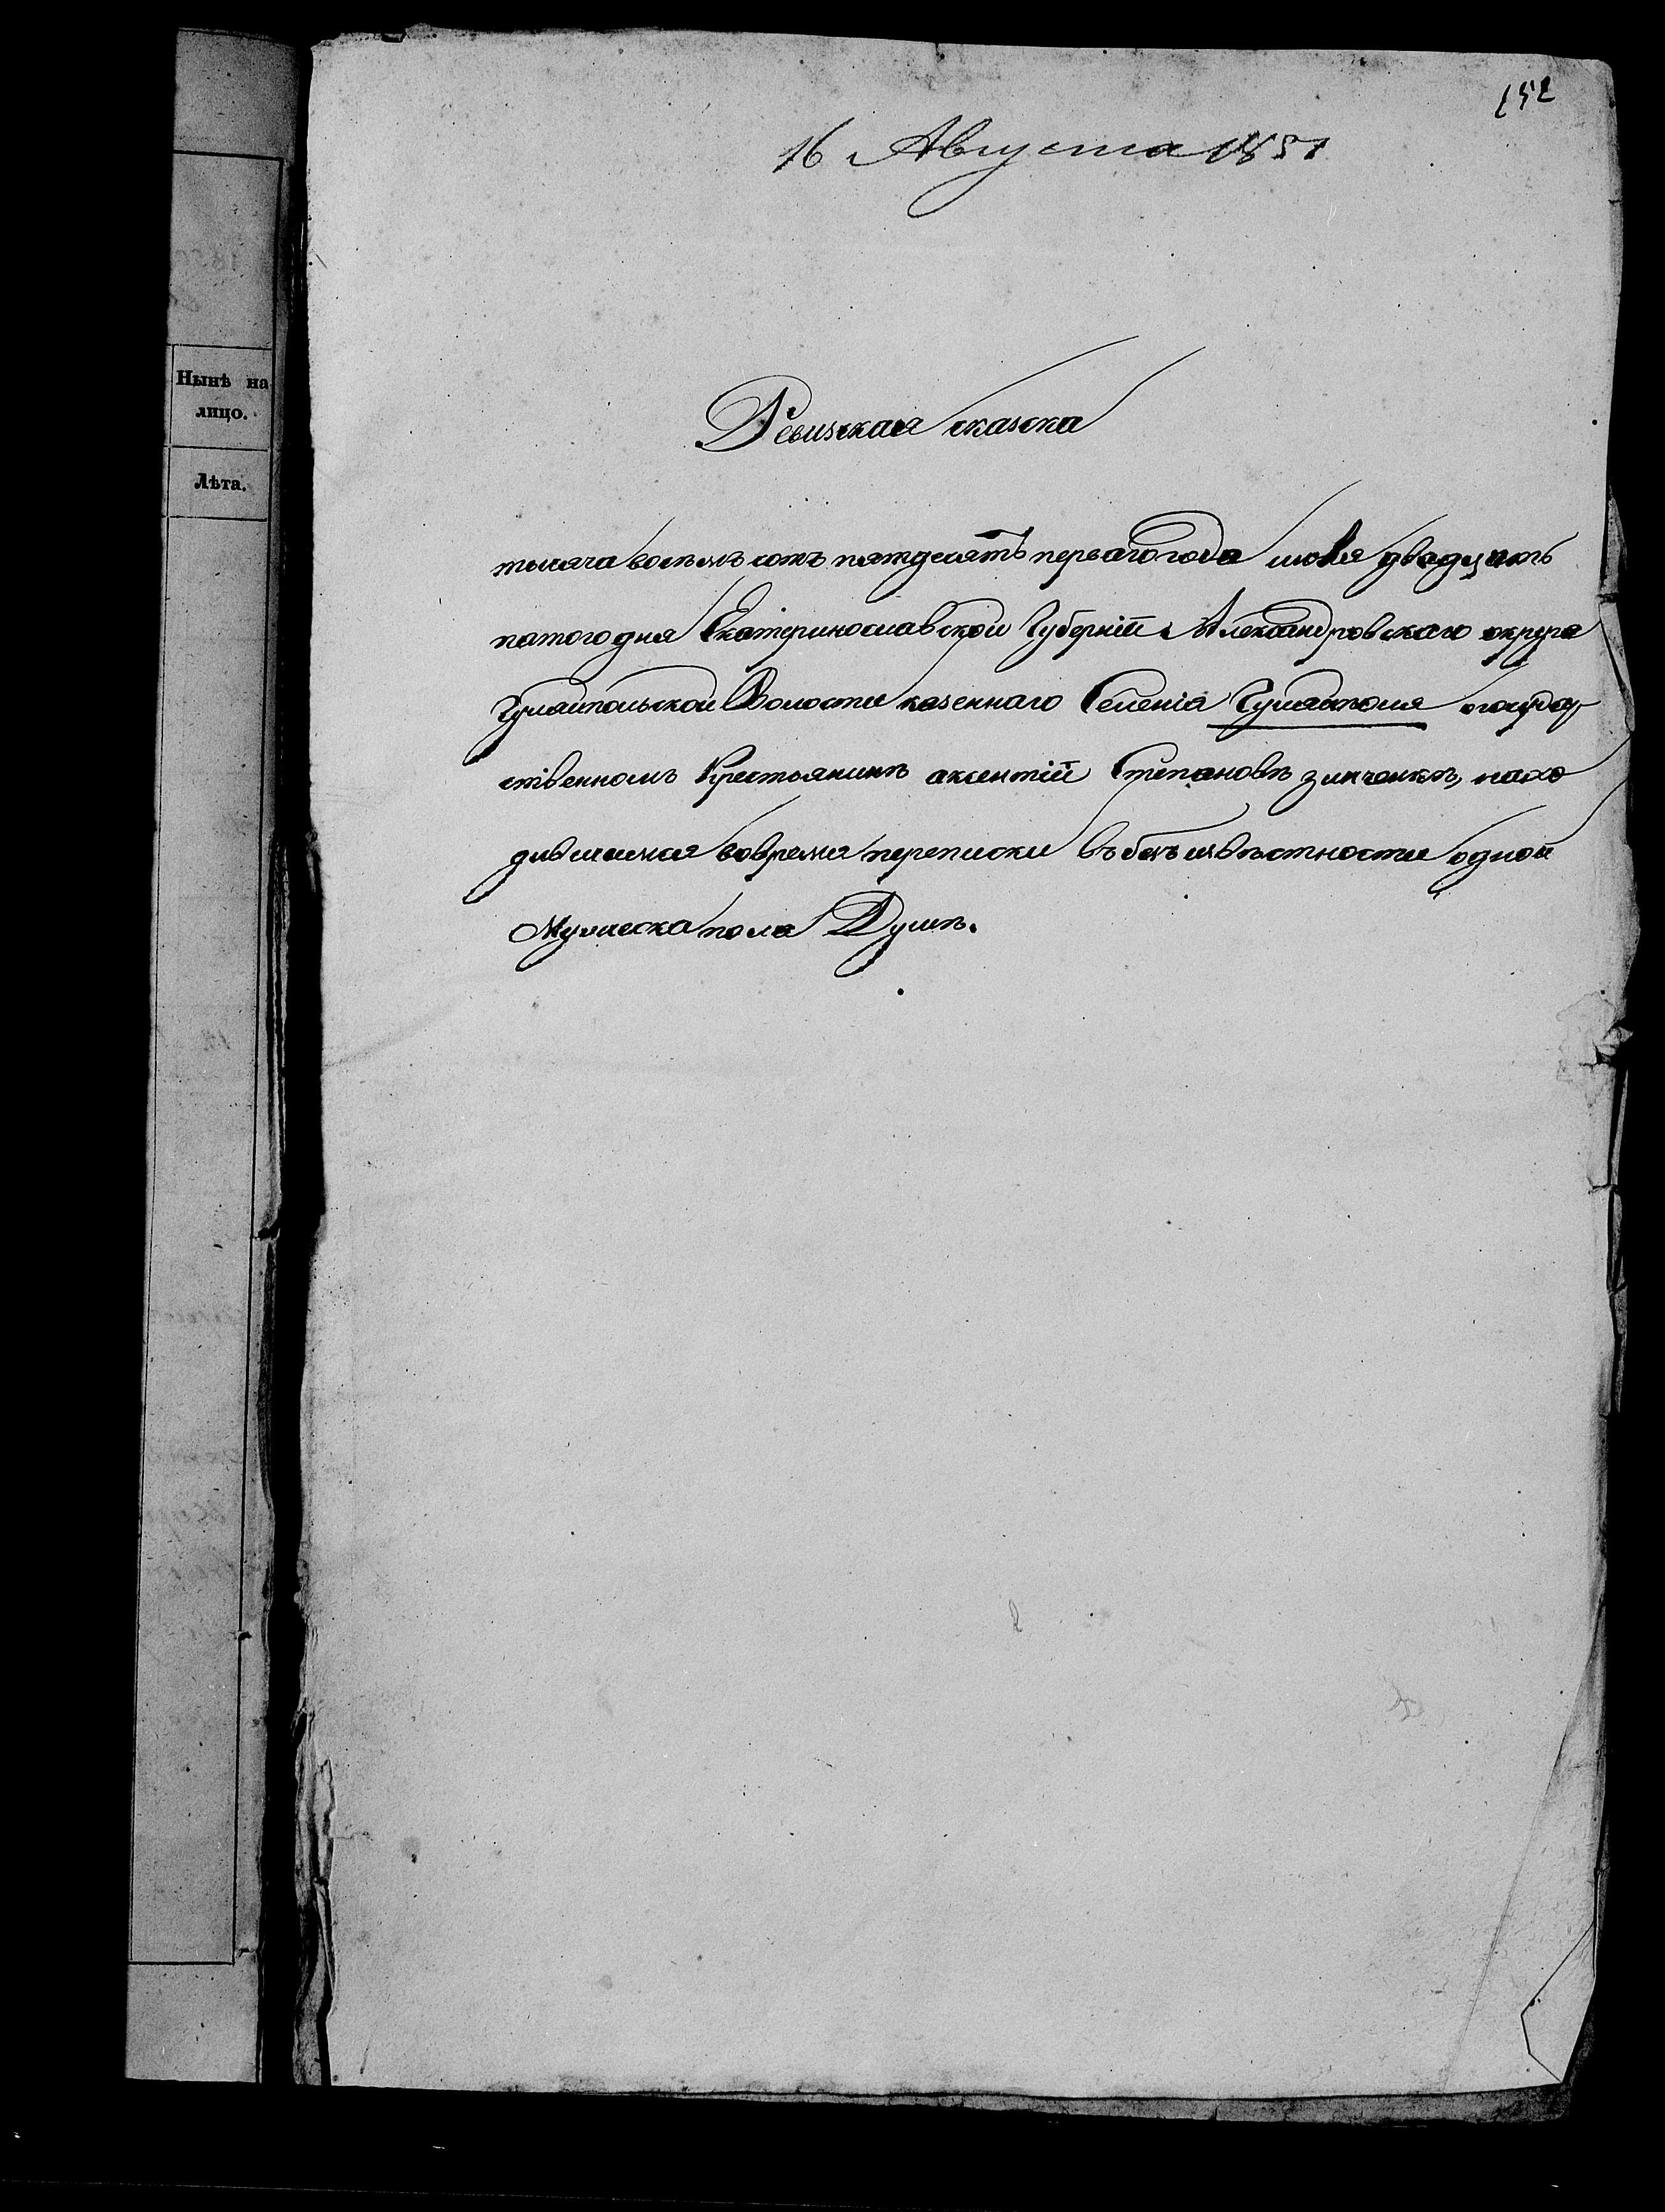 152
16 Августа 1851
Нынѣ на
лицо.
Лѣта.
Ревизская сказка
тысяча восемь сотъ пятдесятъ перваго года июля двадцать
пятого дня Екатеринославской Губернiй Александровскаго округа
Гуляйпольской Волости казеннаго Селенiя Гуляйполя огосудар
ственномъ Крестьянинѣ аксентiй Степановѣ зинченкѣ, нахо
дившимся вовремя переписки въ безъизвѣстности одной
Мужеска пола Душѣ.